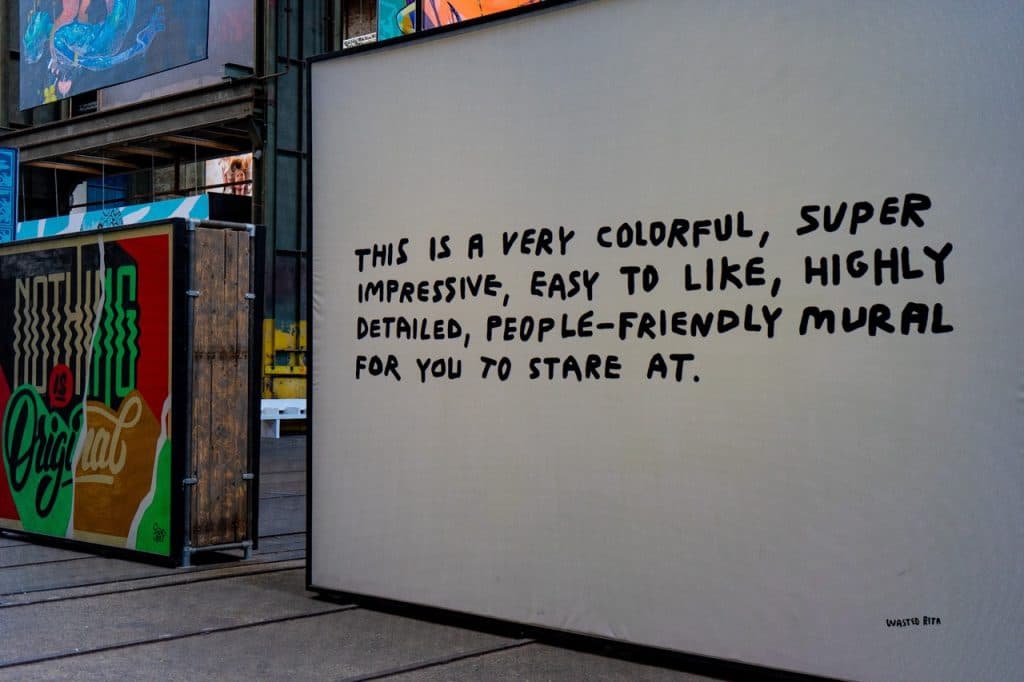 NOTHING
IS
Original
THIS IS A VERY COLORFUL, SUPER
IMPRESSIVE, EASY TO LIKE, HIGHLY
DETAILED, PEOPLE-FRIENDLY MURAL
FOR YOU TO STARE AT.
WASTED RITA